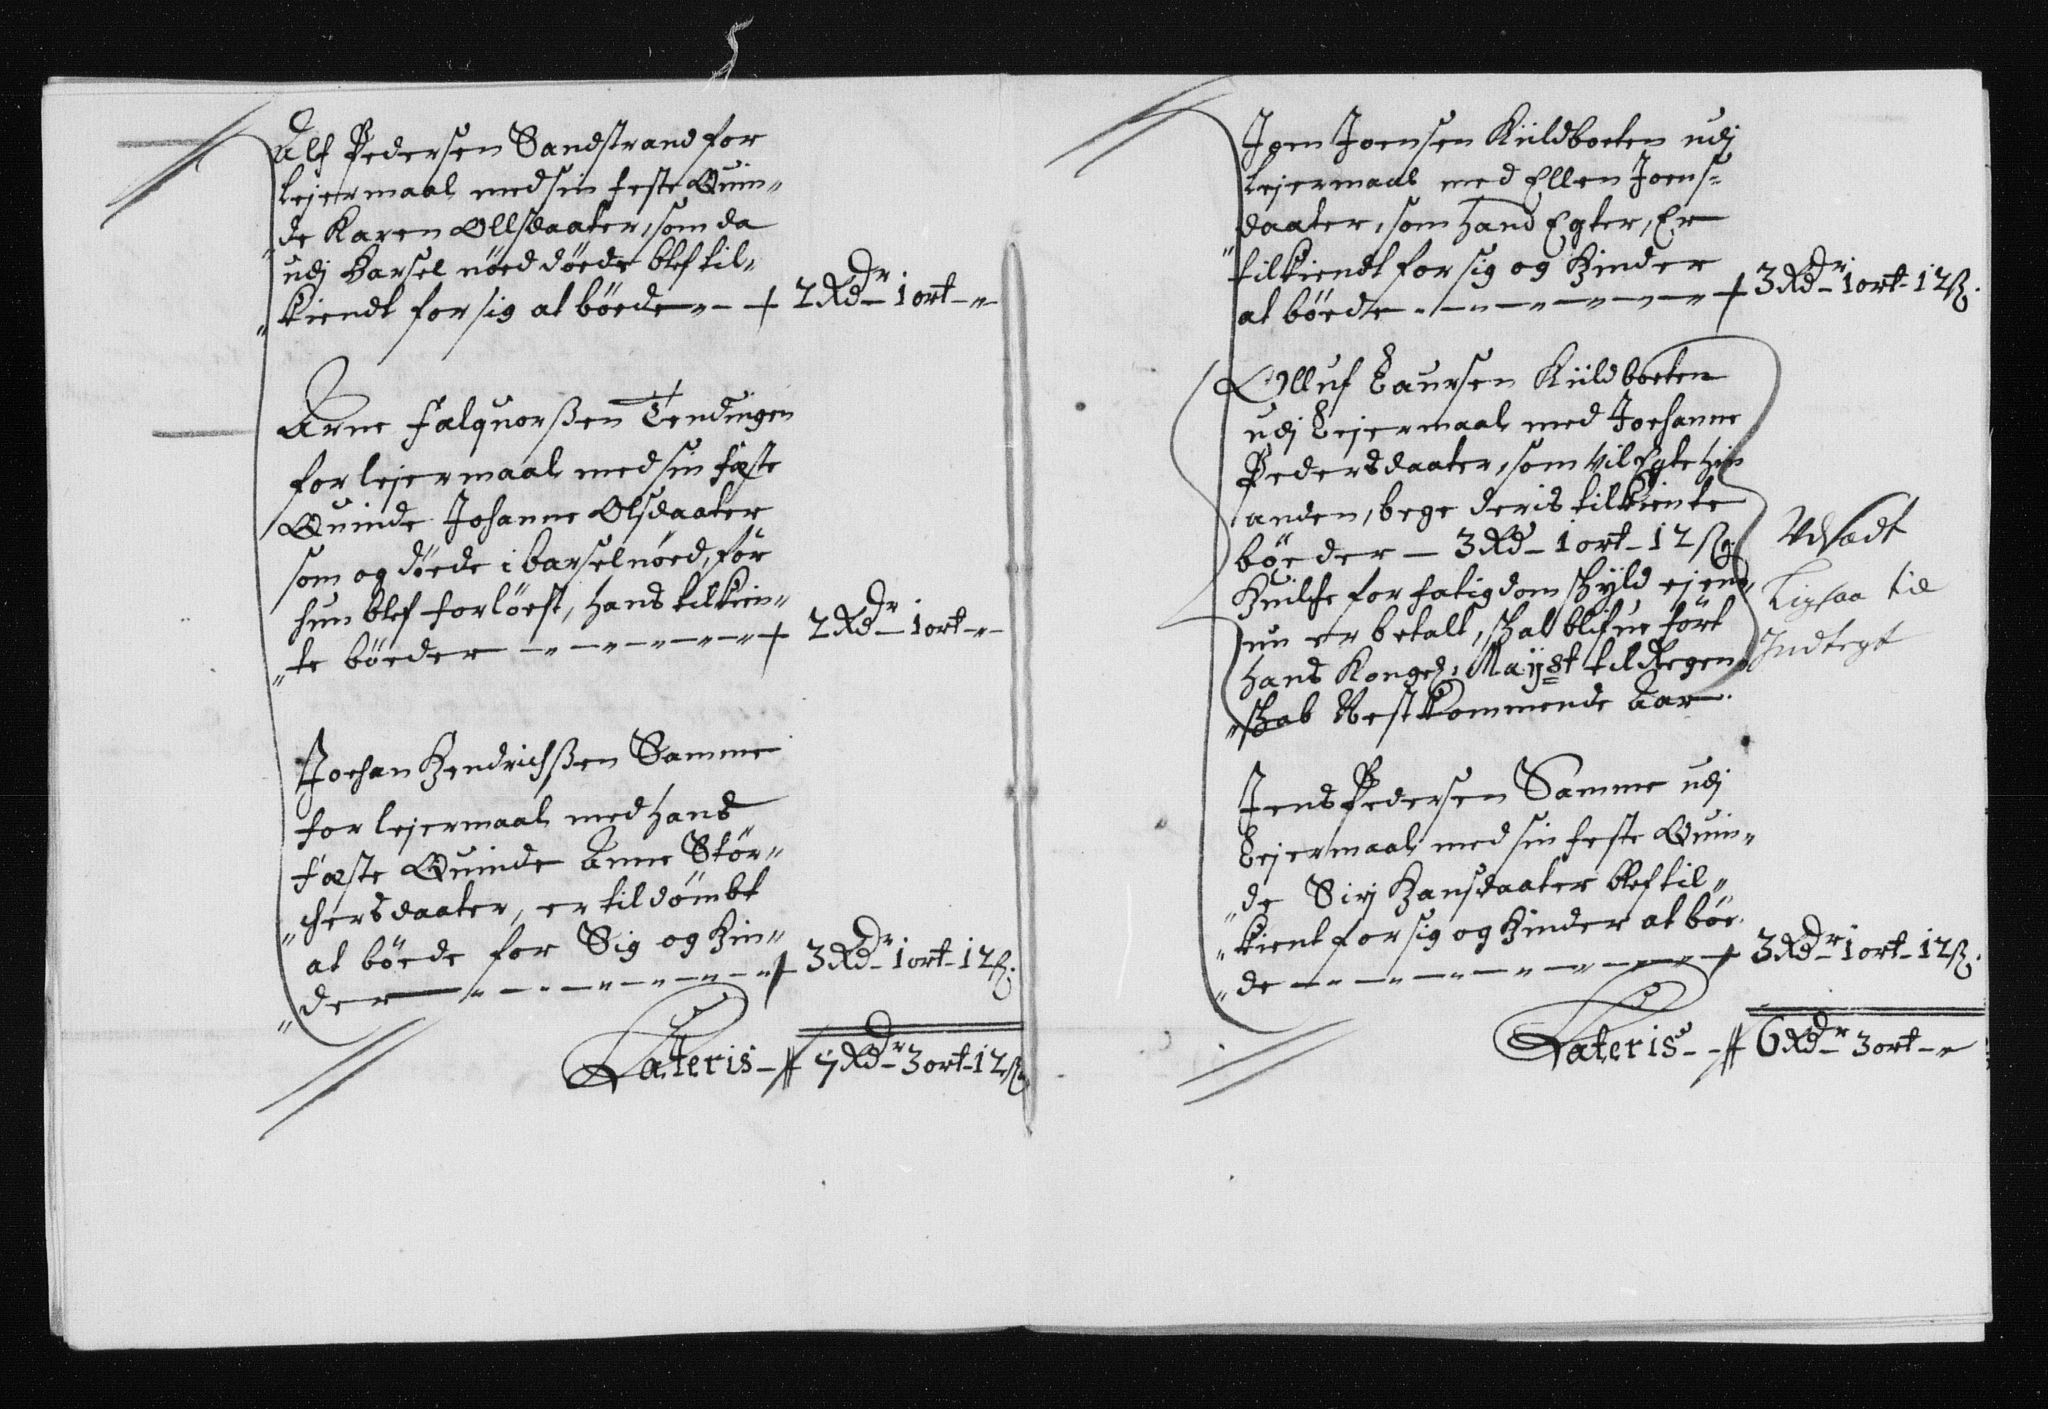 Alf Pedersen Sandstrand for
Lejermaal med sin feste Quin„
de Karen Ollsdaater, som da
udj Barsel nöed döede blef til„
„kiendt for sig at böede „ – + 2 Rdr – 1 ort – „
Arne falquorßen Tendingen
for lejermaal med sin fæste
Quinde Johanne Olsdaater
som og döede i barselnöed, för
hun blef forlöest, hans tilkien„
„te böeder – „ – „ – „ – „ – „ + 2 Rdr – 1 ort – „
Joehan Hendrichßen Samme
for lejermaal med hans
fæste Quinde Anne Stör„
„chersdaater, er tildömbt
at böede for Sig og Hin„
„der – „ – „ – „ – „ – „ + 3 Rdr – 1 ort – 12 ß.
Lateris – # 7 Rdr – 3 ort – 12 ß
Joen Joensen Kiildboeten udj
Lejermaal med Ellen Joens„
daater, som hand Egter, Er
„tilkiendt for sig og Hinder
at böede – „ – „ – „ – „ – „ + 3 Rdr – 1 ort – 12 ß.
Olluf Laursen Kiildboeten
udj Lejermaal med Joehanne
Pedersdaater, som vil Egte hin
anden, bege deris tilkiente
böeder – 3 Rd – 1 ort – 12 ß
Huilche for fatigdom skyld ej end
nu er betalt, skal blifue fört
hans Kongel: Mayst til Regen„
„skab Nestkommende Aar.
Udsædt
Ligsaa til
Indtegt
Jens Pedersen Samme udj
Lejermaal med sin feste Quin„
„de Sirj Hansdaater blef til„
„kient for sig og Hinder at böe„
„de – „ – „ – „ – „ – „ + 3 Rdr – 1 ort – 12 ß.
Lateris – # 6 Rdr – 3 ort – „